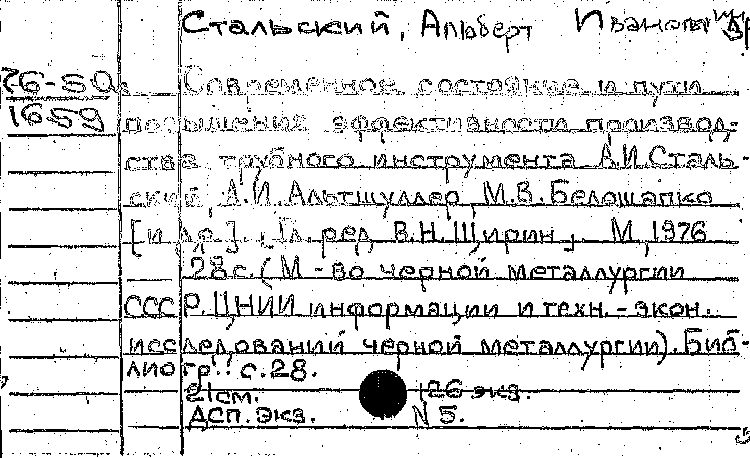 Стальский, Альберт Иванович др
76-50
1659
Современное состояние и пути
повышения эффективности производ-
ства трубного инструмента А.И.Сталь-
ский, А.И.Альтшуллер, М.В.Белошапко
[и др.], Гл. ред. В.Н.Щирин, М, 1976
28с. (М-во черной металлургии
СССР. ЦНИИ информации и техн.-экон.
исследований черной металлургии). Биб-
лиогр.: с.28.
21см. 126 экз.
ДСП. Экз. N 5.